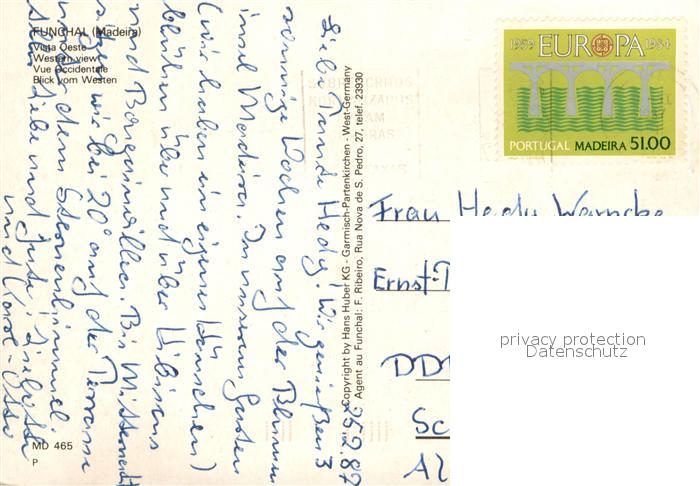 FUNCHAL (Madeira)
Vista Oeste
Western view
Vue Occidentale
Blick vom Westen
MD 465
P
Copyright by Hans Huber KG - Garmisch-Partenkirchen - West-Germany
Agent au Funchal: F. Ribeiro, Rua Nova de S. Pedro, 27, telef. 23930
25.2.87
Liebe Tante Hedy! Wir genießen 3
sonnige Wochen auf der Blumen
insel Madeira. In unserem Garten
(wir haben ein eigenes Häuschen)
blühen über und über Hibiscus
und Bougainvillea. Bis Mitternacht
sitzen wir bei 20° auf der Terrasse
unter dem Sternenhimmel.
Liebe und Gute
und
1959 EUROPA 1984
PORTUGAL MADEIRA 51.00
Frau Hedy Warncke
Ernst-T
DD
Sc
Al
privacy protection
Datenschutz